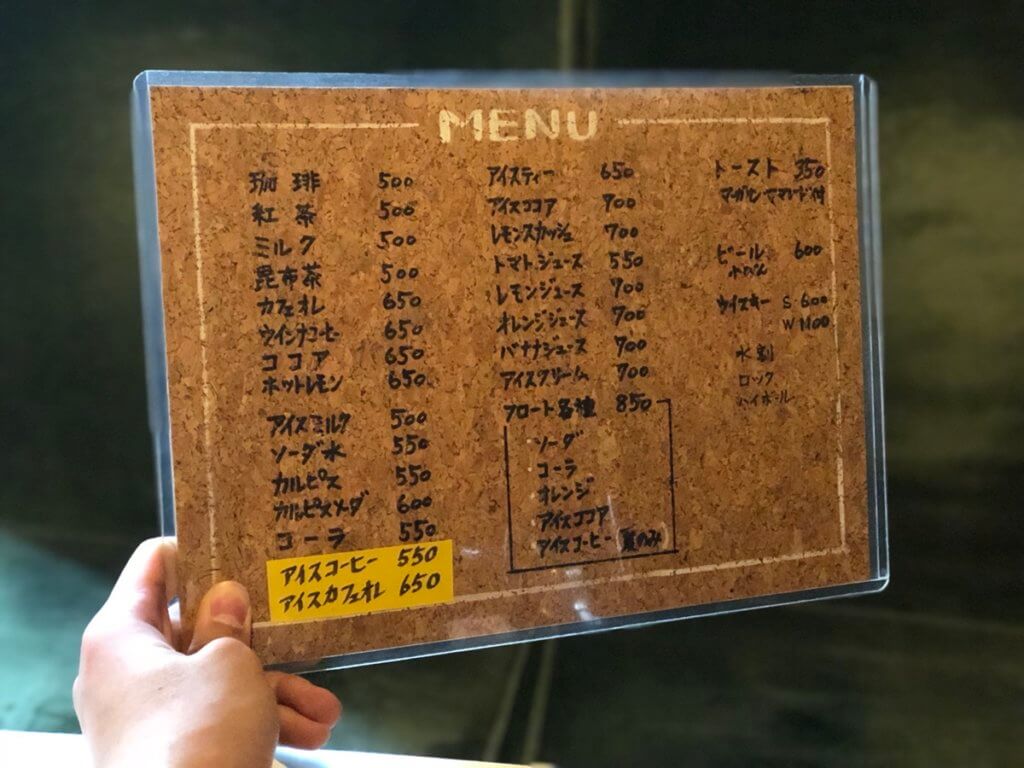 MENU
珈琲 500
紅茶 500
ミルク 500
昆布茶 500
カフェオレ 650
ウインナコーヒー 650
ココア 650
ホットレモン 650
アイスミルク 500
ソーダ水 550
カルピス 550
カルピスソーダ 600
コーラ 550
アイスコーヒー 550
アイスカフェオレ 650
アイスティー 650
アイスココア 700
レモンスカッシュ 700
トマトジュース 550
レモンジュース 700
オレンジジュース 700
バナナジュース 700
アイスクリーム 700
フロート各種 850
ソーダ
コーラ
オレンジ
アイスココア
アイスコーヒー(夏のみ)
トースト 350
ビール 600
ウイスキー S 600
W 1100
水割
ロック
ハイボール